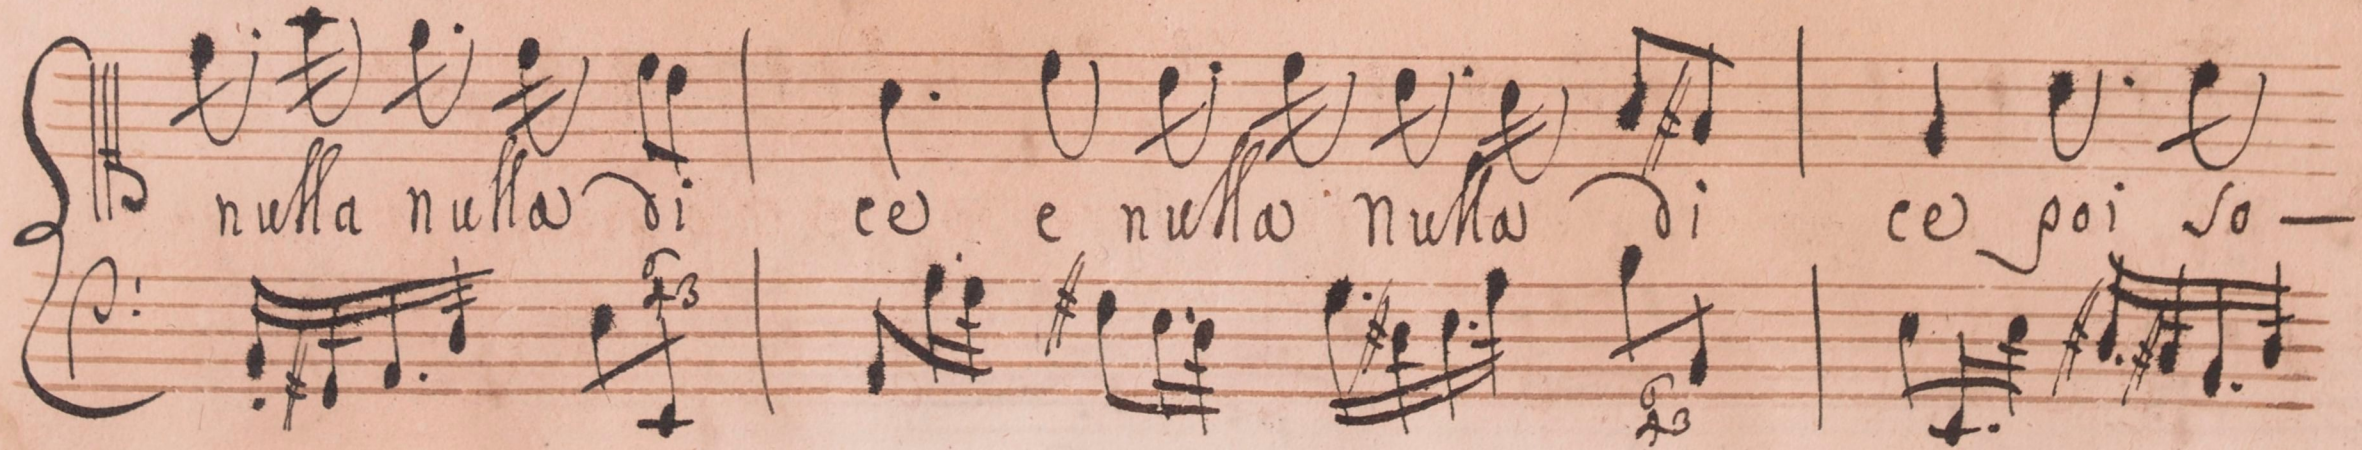 nulla nulla di ce e nulla nulla di ce poi so—
6
43
6
43